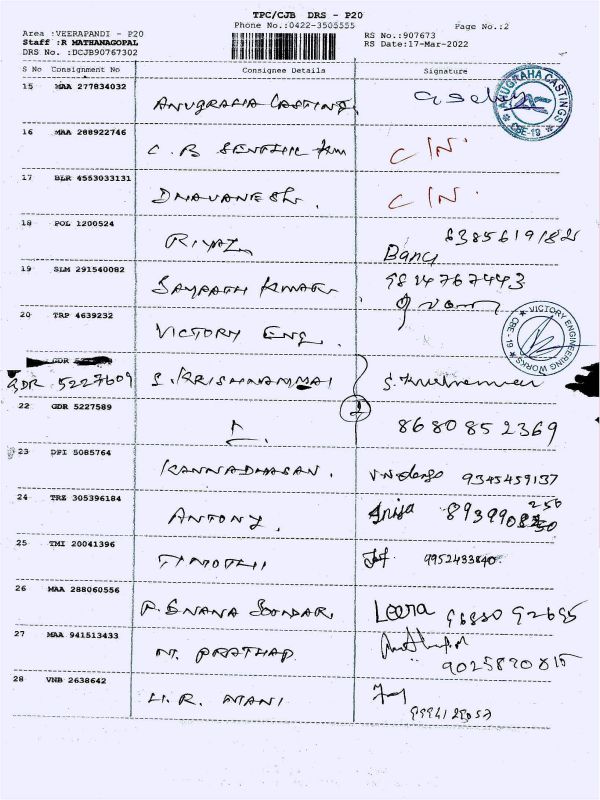 TPC/CJB DRS - P20
Phone No.:0422-3505555
Page No.:2
Area :VEERAPANDI - P20
Staff :R MATHANAGOPAL
DRS No. :DCJB90767302
RS No.:907673
RS Date:17-Mar-2022
S No Consignment No Consignee Details Signature
15 MAA 277834032 ANUGRAHA CASTING
ANUGRAHA CASTINGS CBE-19
16 MAA 288922746 C. B SENTHIL Km C/N.
17 BLR 4553033131 DHAVANESH. C/N.
18 POL 1200524 RIYAZ
Banu
19 SLM 291540082 SAMPATH KUMAR 9814767443
20 TRP 4639232 VICTORY ENG.
VICTORY ENGINEERING WORKS CBE-19
GDR
GDR 5227609 S. KRISHNAMMAI
22 GDR 5227589 8680852369
23 DPI 5085764 KANNADHASAN. 9345459137
24 TRZ 305396184 ANTONY.
25 TMI 20041396 TIMOTHI 9952433840.
26 MAA 288060556 P. GNANA SOUNDARI Leena
27 MAA 941513433 N. PRATHAP 9025870815
28 VNB 2638642 H. R. MANI